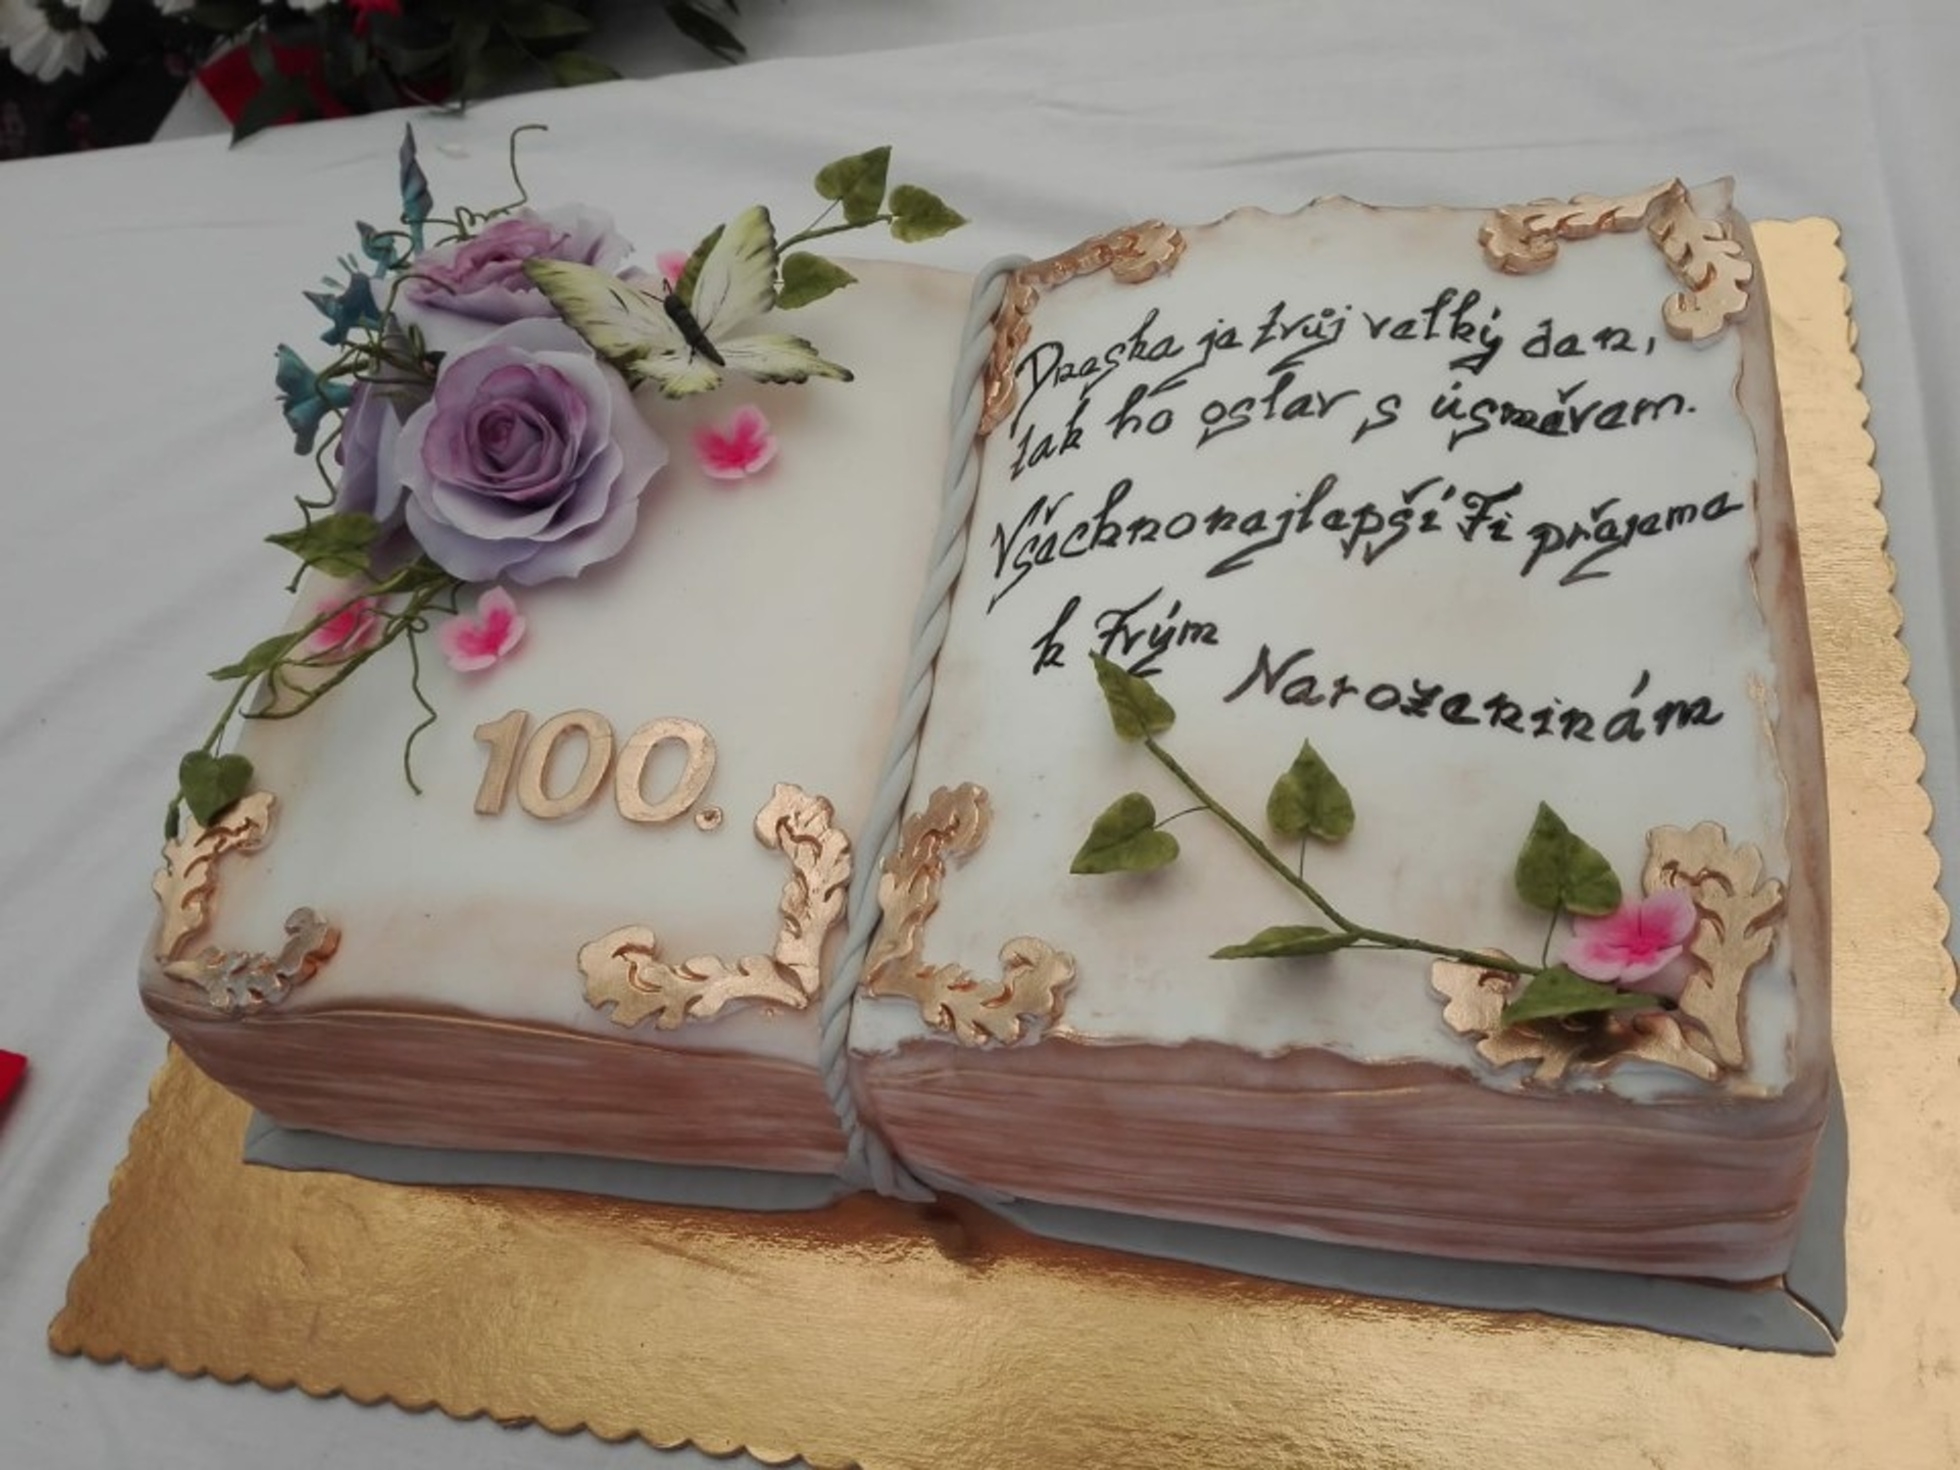 100.
Dneska je tvůj velký den,
tak ho oslav s úsměvem.
Všechnonejlepší Ti přejeme
k Tvým
Narozeninám